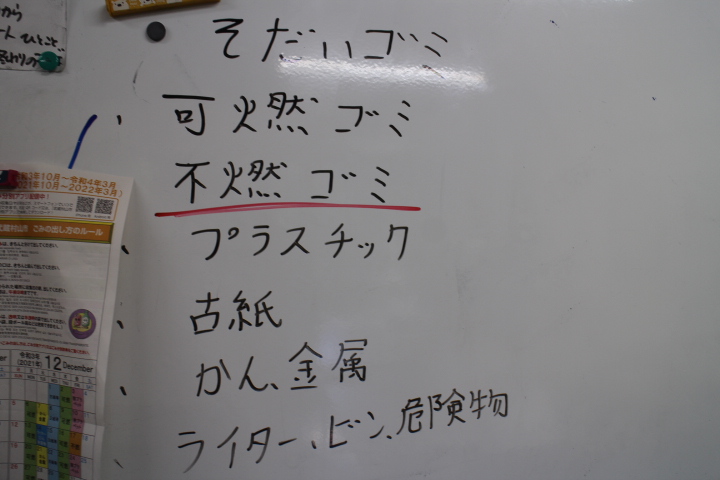 そだいゴミ
可燃ゴミ
不燃ゴミ
プラスチック
古紙
かん、金属
ライター、ビン、危険物
から
ひとこと
10月~令和4年3月
10月~2022年3月)
ごみの出し方のルール
令和3年
(2021年) 12 December